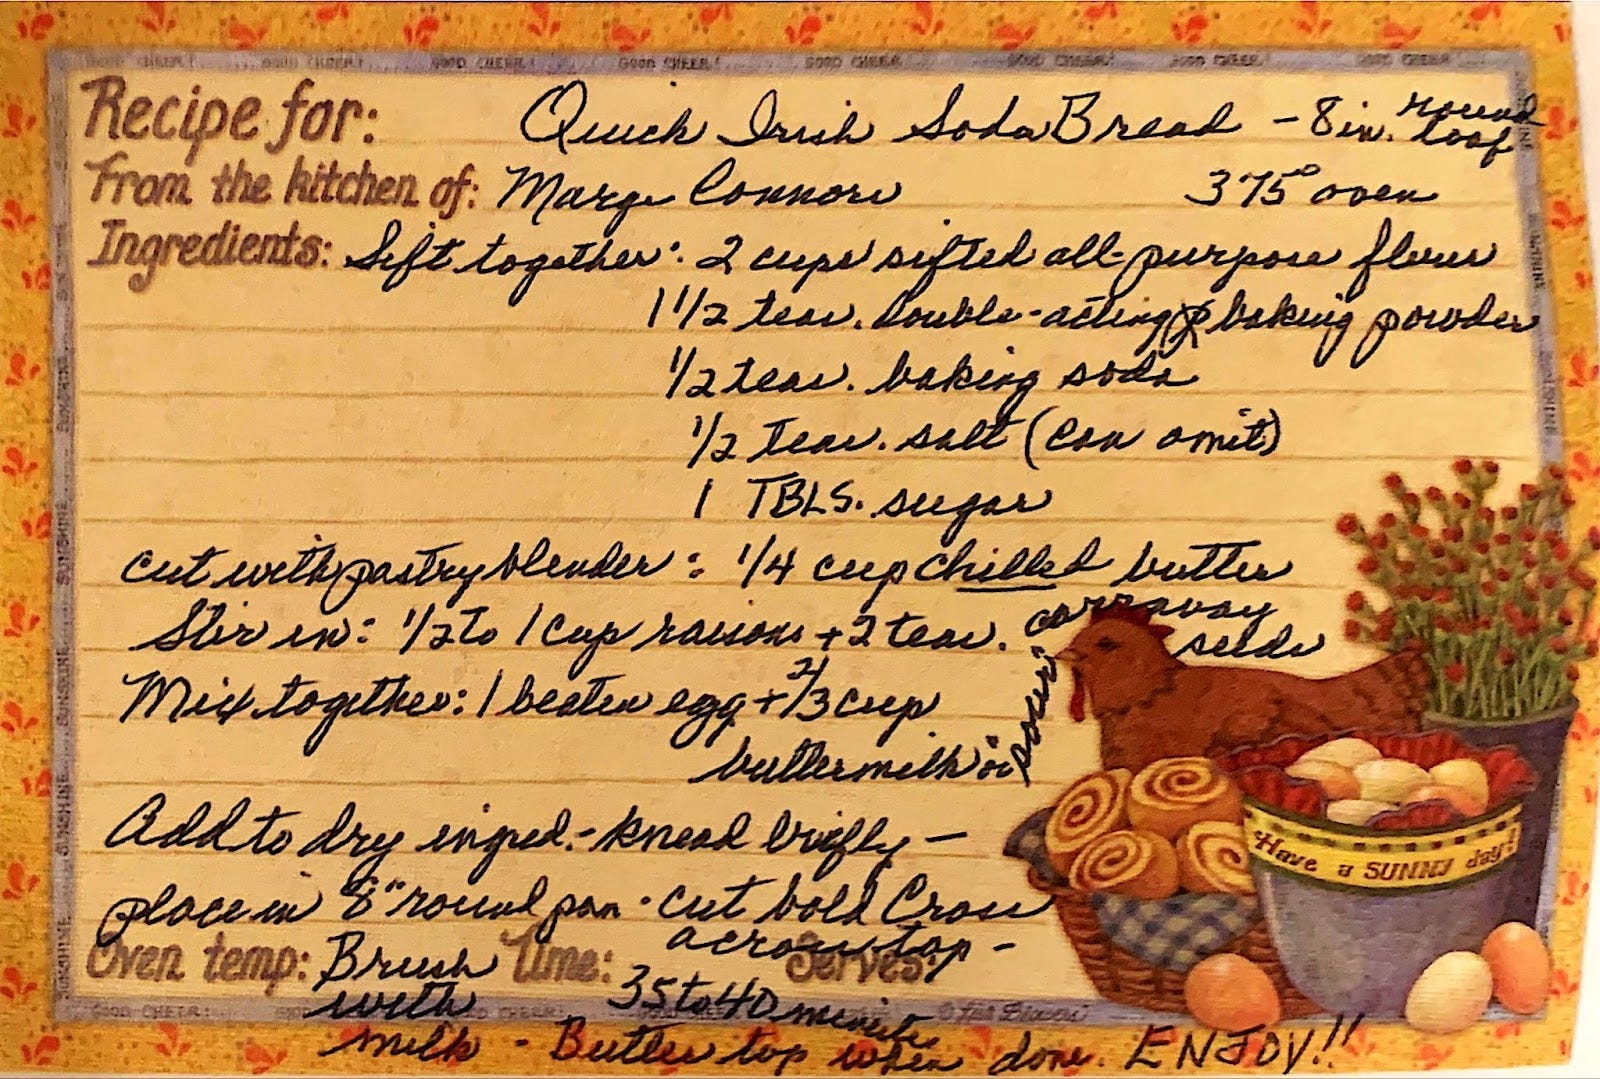 GOOD CHEER! GOOD CHEER! GOOD CHEER! GOOD CHEER! GOOD CHEER! GOOD CHEER! GOOD CHEER! GOOD CHEER!
Recipe for: Quick Irish Soda Bread - 8 in. round loaf
From the kitchen of: Marge Connors 375° oven
Ingredients: Sift together: 2 cups sifted all-purpose flour
1 1/2 teas. double-acting baking powder
1/2 teas. baking soda
1/2 teas. salt (can omit)
1 TBLS. sugar
cut with pastry blender: 1/4 cup chilled butter
Stir in: 1/2 to 1 cup raisons + 2 teas. carraway seeds
Mix together: 1 beaten egg + 2/3 cup
buttermilk or sour
Add to dry ingred. - knead briefly -
place in 8" round pan - cut bold Cross
across top -
Oven temp: Time: Serves:
Brush with 35 to 40 minutes
milk - Butter top when done. ENJOY!!
Have a SUNNY day!
SUNSHINE SUNSHINE SUNSHINE SUNSHINE
GOOD CHEER! GOOD CHEER!